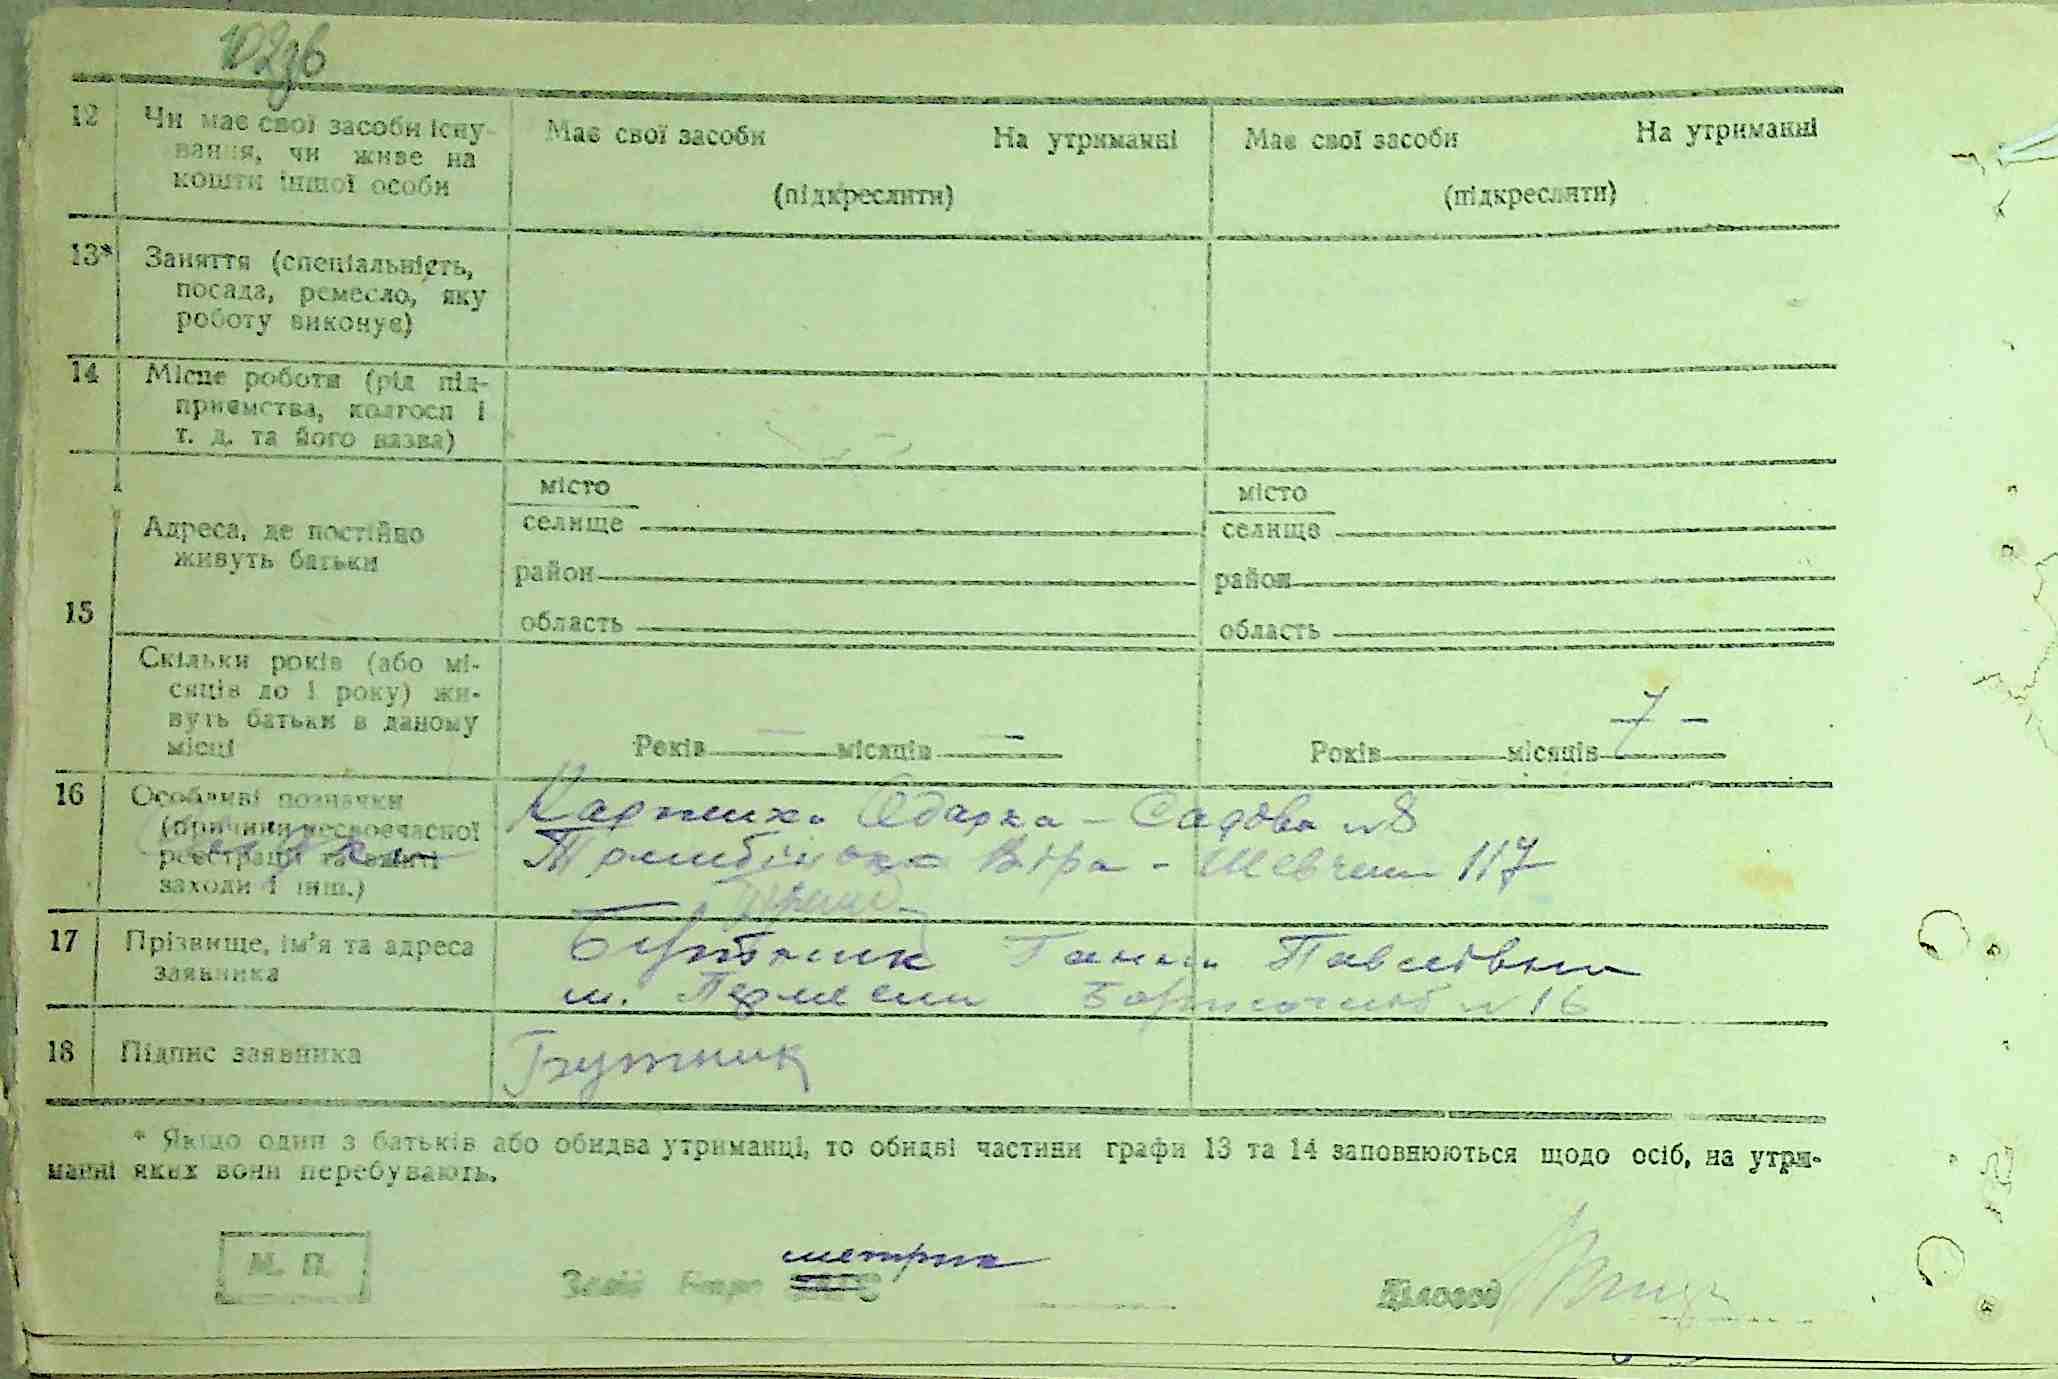 102зв
12 Чи має свої засоби існу-
вання, чи живе на
кошти іншої особи
Має свої засоби На утриманні
(підкреслити)
Має свої засоби На утриманні
(підкреслити)
13* Заняття (спеціальність,
посада, ремесло, яку
роботу виконує)
14 Місце роботи (рід під-
приємства, колгосп і
т. д. та його назва)
15 Адреса, де постійно
живуть батьки
місто
селище
район
область
місто
селище
район
область
Скільки років (або мі-
сяців до 1 року) жи-
вуть батьки в даному
місці
Років — місяців —
Років місяців 7 —
16 Особливі позначки
(причини несвоєчасної
реєстрації та вжиті
заходи і інш.)
Одарка – Садова №8
Віра - 117
17 Прізвище, ім'я та адреса
заявника
Ганна Павлівна
м. №16
18 Підпис заявника
* Якщо один з батьків або обидва утриманці, то обидві частини графи 13 та 14 заповнюються щодо осіб, на утри-
манні яких вони перебувають.
М. П.
метрик
Зав. Бюро ЗАГС
Діловод